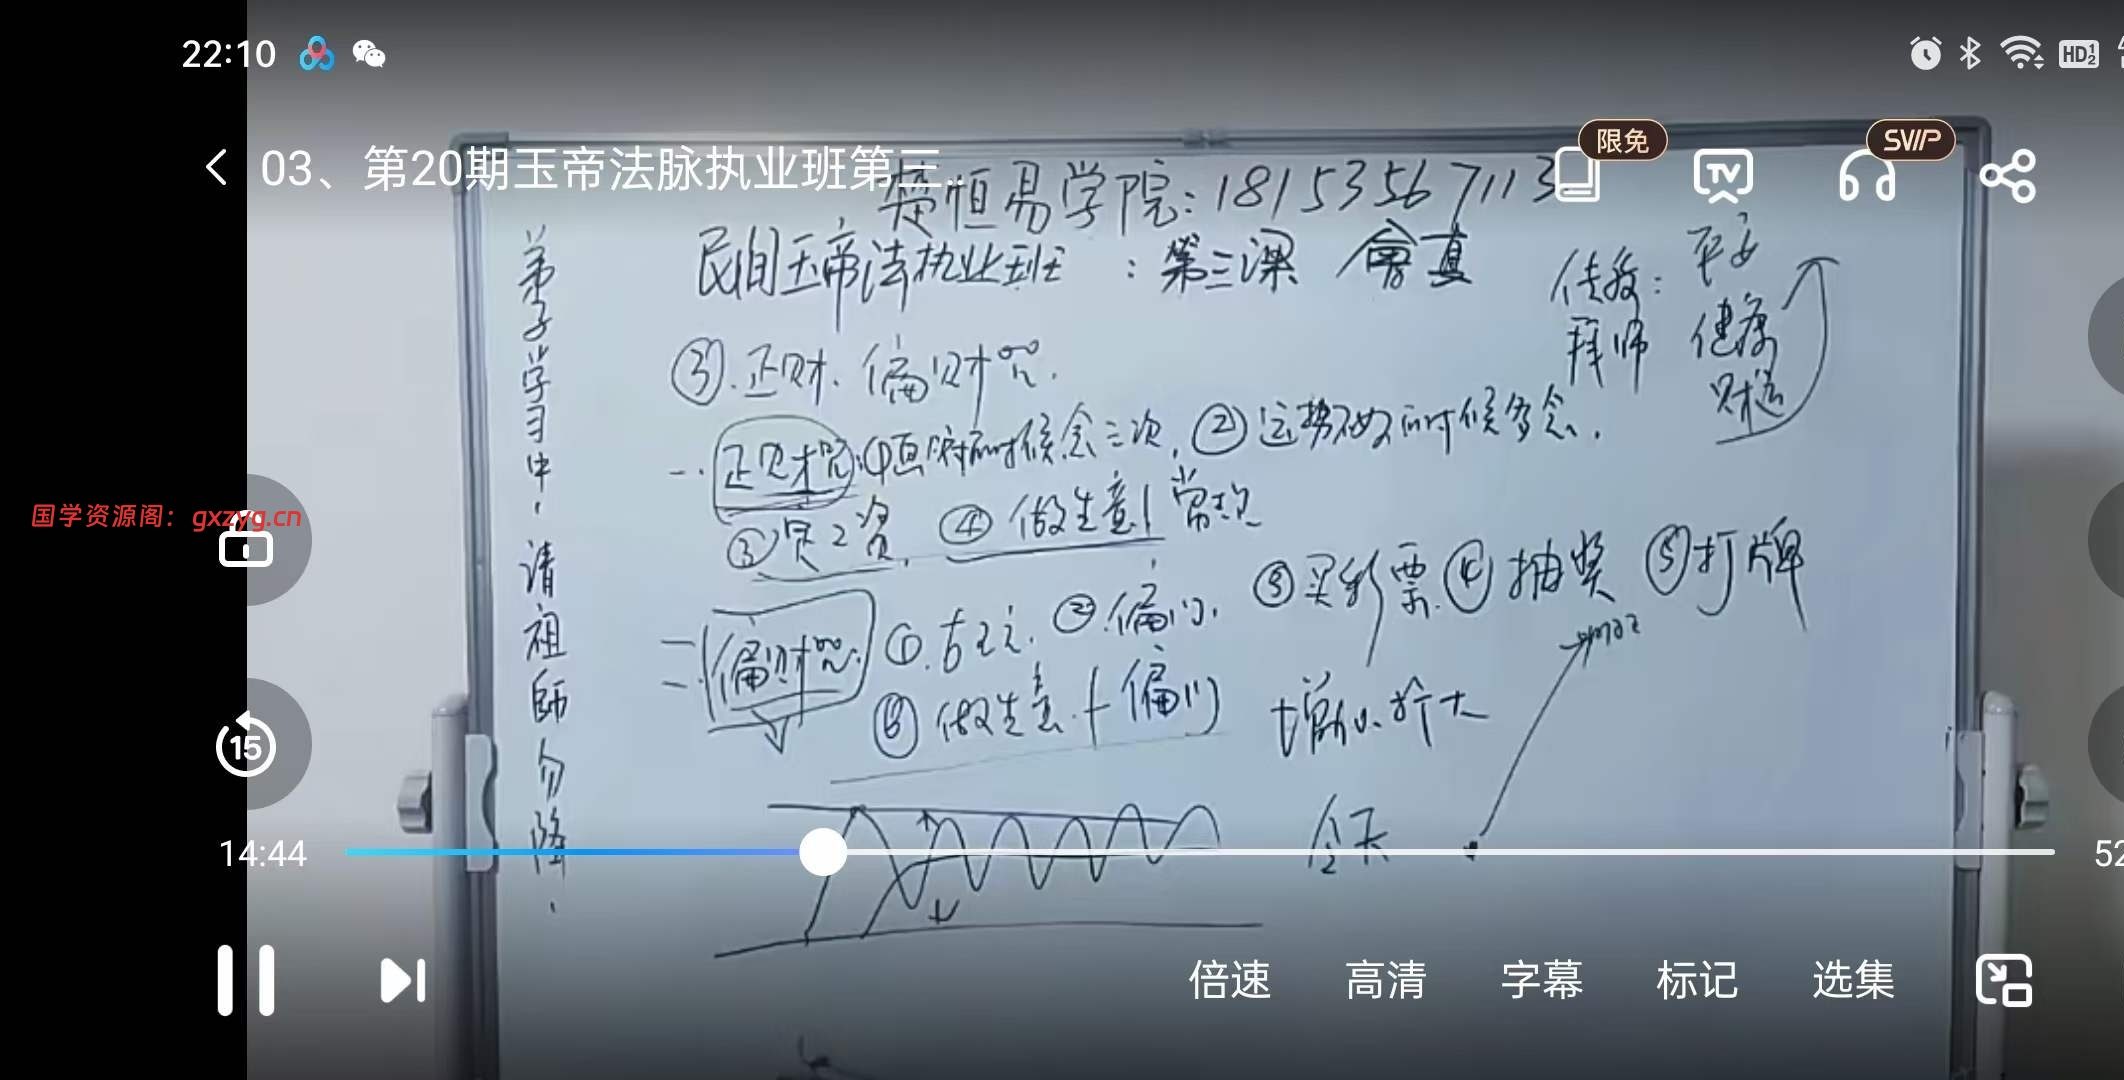 22:10
HD 1 2
03、第20期玉帝法脉执业班第三..
限免
TV
SVIP
楚恒易学院:18153567113
民间玉帝法执业班:第三课 會真
传度: 平安
拜师 健康
财运
③.正财、偏财咒.
一.正财咒:①画符的时候念三次,②运势不好的时候多念.
③涨工资, ④做生意
二.偏财咒: ②.偏门. ③买彩票.④抽奖 ⑤打牌
⑥做生意.十偏门 增加.扩大
今天
弟子学习中,请祖師勿降.
国学资源阁：gxzyg.cn
15
14:44
52
倍速 高清 字幕 标记 选集